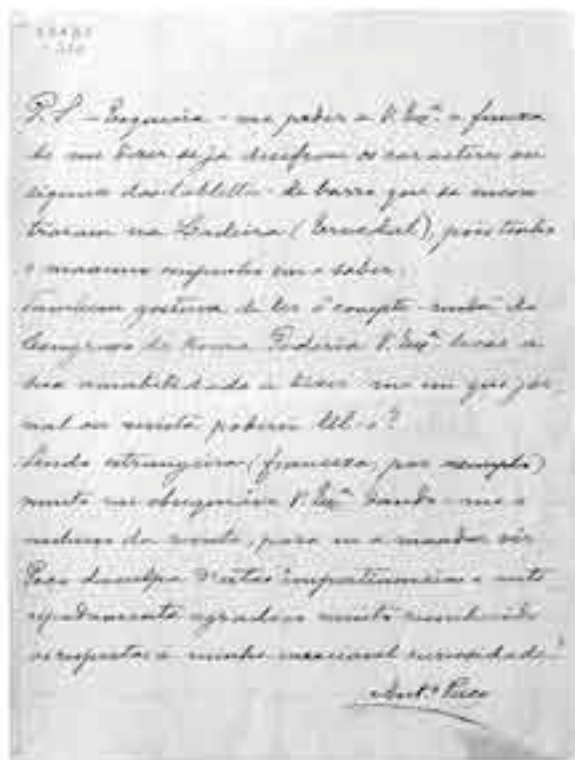 P.S. - Esqueceu-me pedir a V. Exª a fineza
de me dizer se já decifrou os caracteres ou
signaes das tabletas de barro que se encon
traram na (Ervedal), pois tenho
o maximo empenho em o saber.
Tambem gostava de ler o compte-rendu do
Congresso de Roma. Poderia V. Exª levar a
sua amabilidade a dizer-me em que jor
nal ou revista poderei lel-o?
Sendo estrangeira (franceza, por exemplo)
muito me obsequiára V. Exª dando-me o
da revista, para eu a mandar vir.
Peço desculpa d'estas impertinencias e
agradeço muito reconhecido
a resposta á minha curiosidade.
Antº Paço